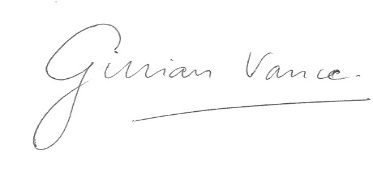 Gillian Vance.